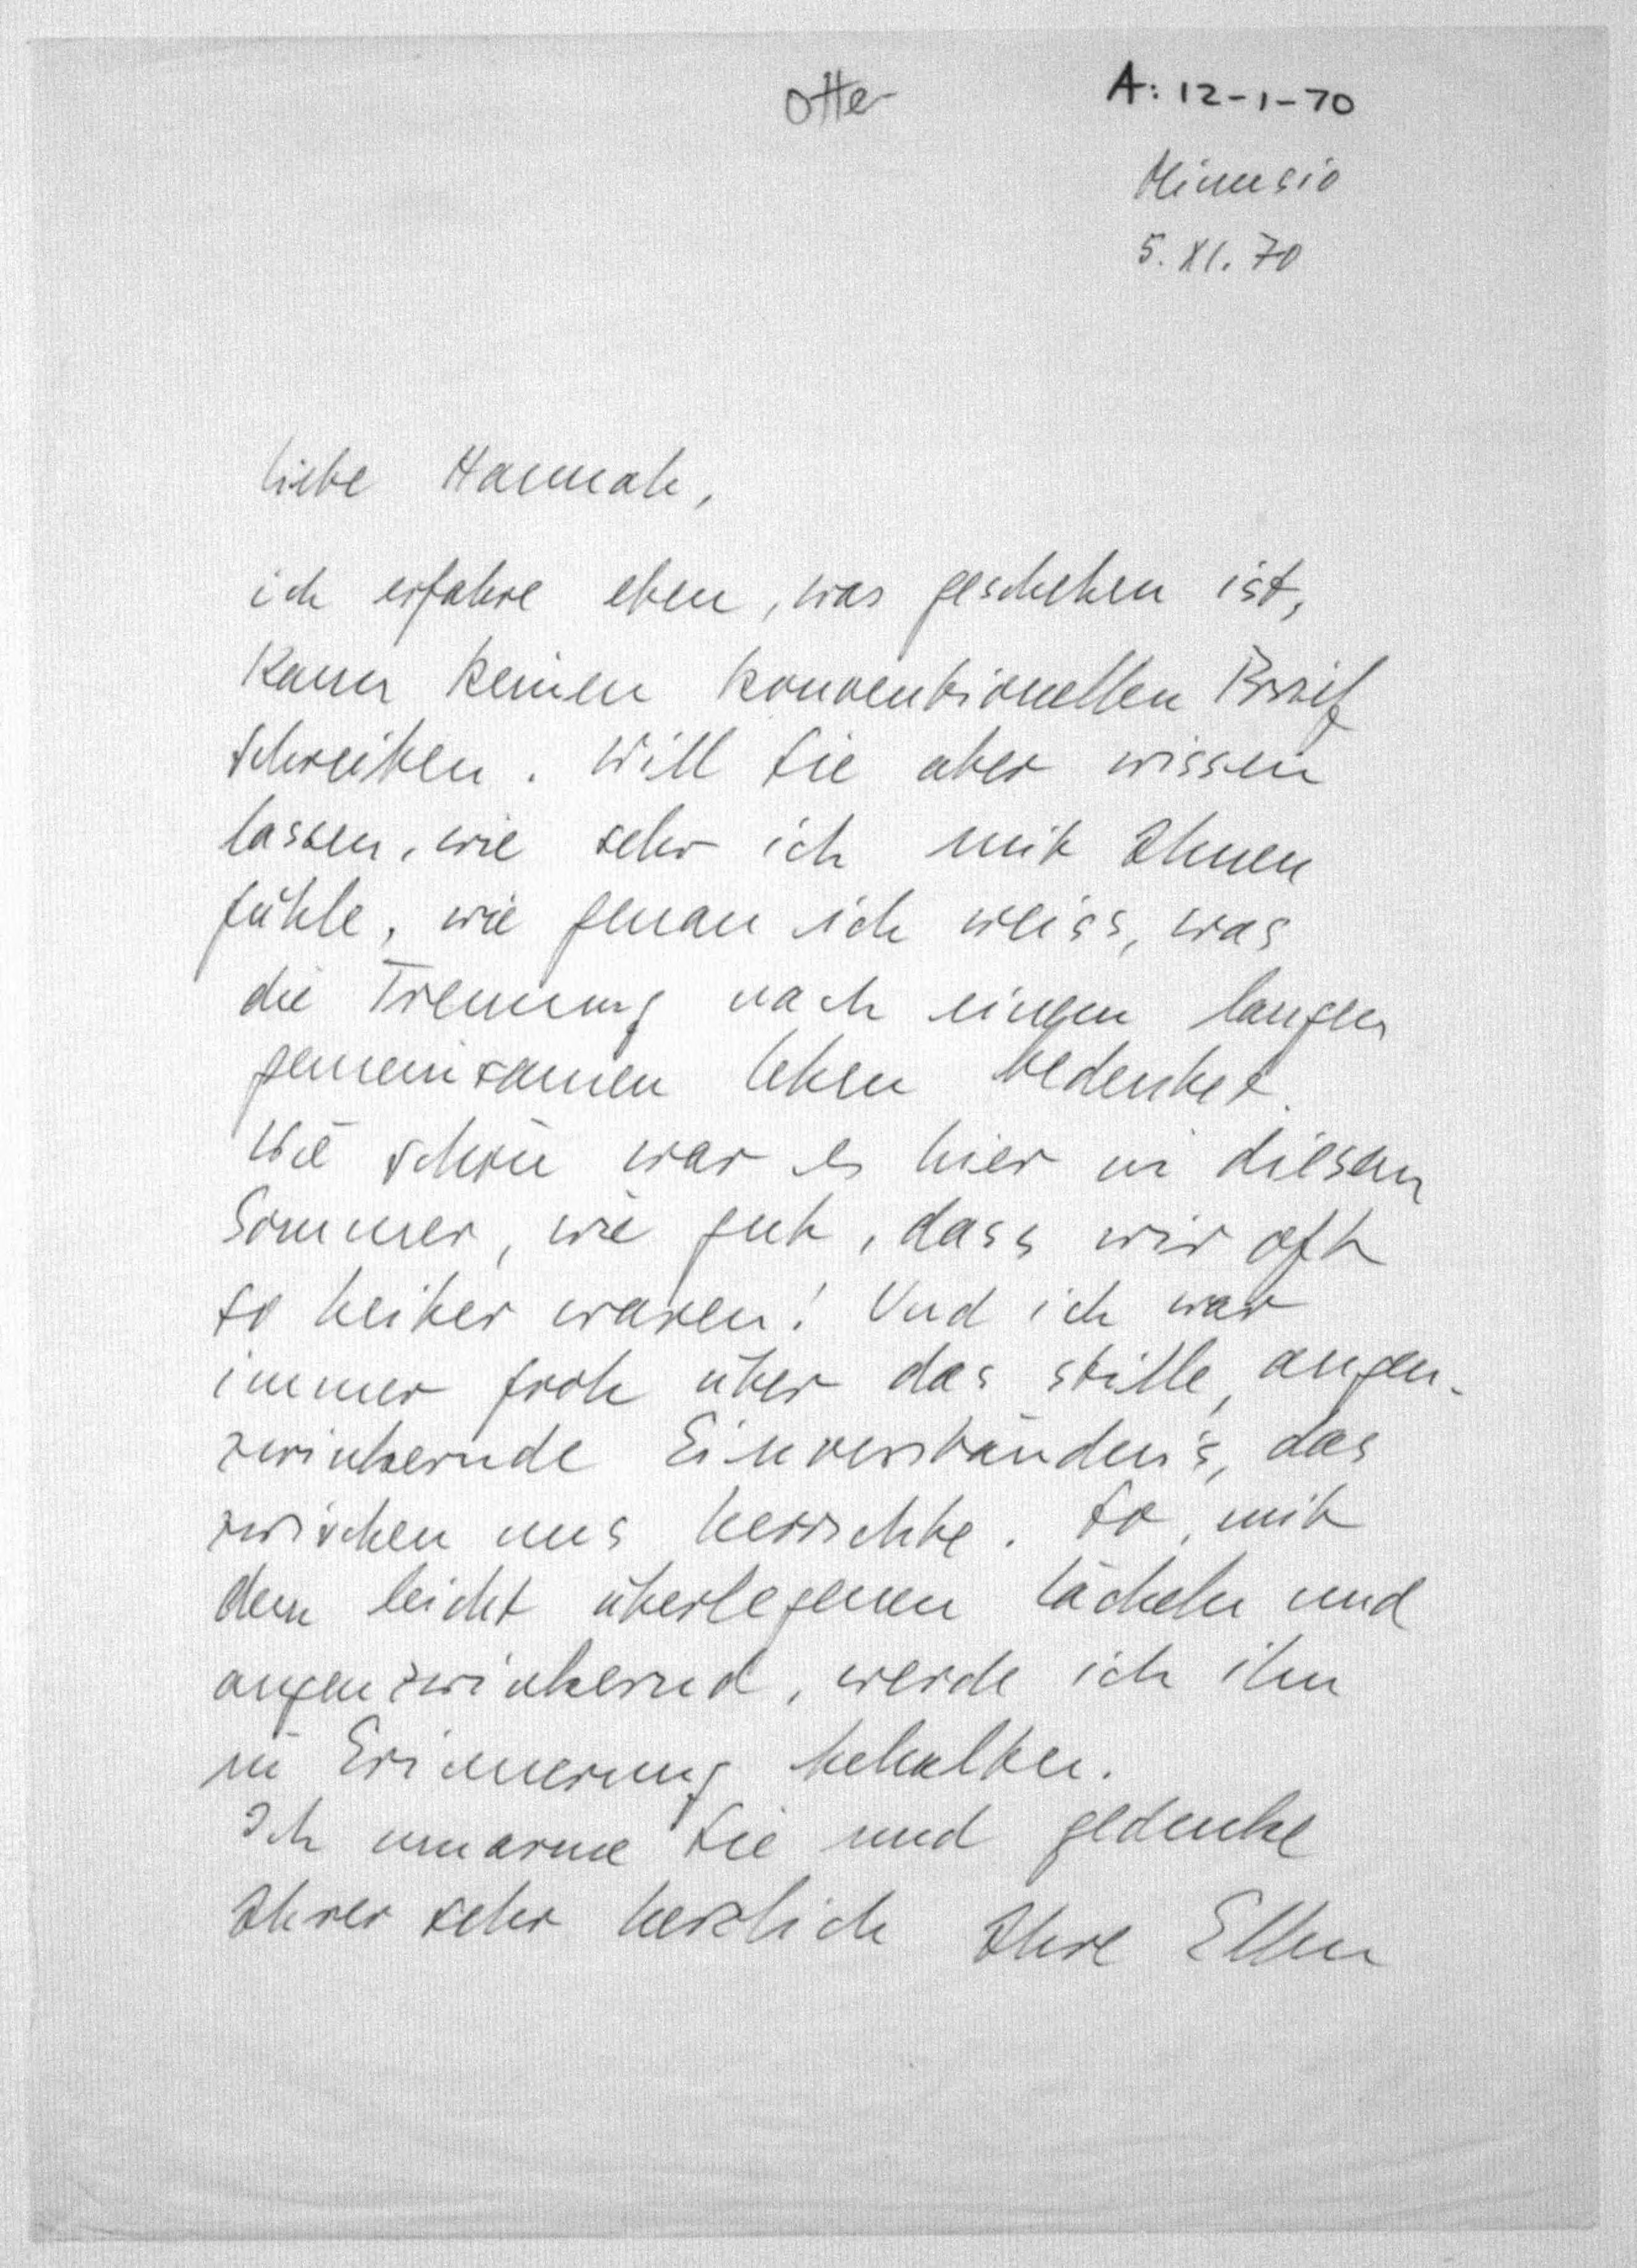 Otter
A: 12-1-70
Minusio
5. XI. 70
Liebe Hannah,
ich erfahre eben, was geschehen ist,
kann keinen konventionellen Brief
schreiben. Will Sie aber wissen
lassen, wie sehr ich mit Ihnen
fühle, wie genau ich weiss, was
die Trennung nach einem langen
gemeinsamen Leben bedeutet.
Wie schön war es hier in diesem
Sommer, wie gut, dass wir oft
so heiter waren! Und ich war
immer froh über das stille, augen-
zwinkernde Einverständnis, das
zwischen uns herrschte. So, mit
dem leicht überlegenen Lächeln und
augenzwinkernd, werde ich ihn
in Erinnerung behalten.
Ich umarme Sie und gedenke
Ihrer sehr herzlich Ihre Ellen